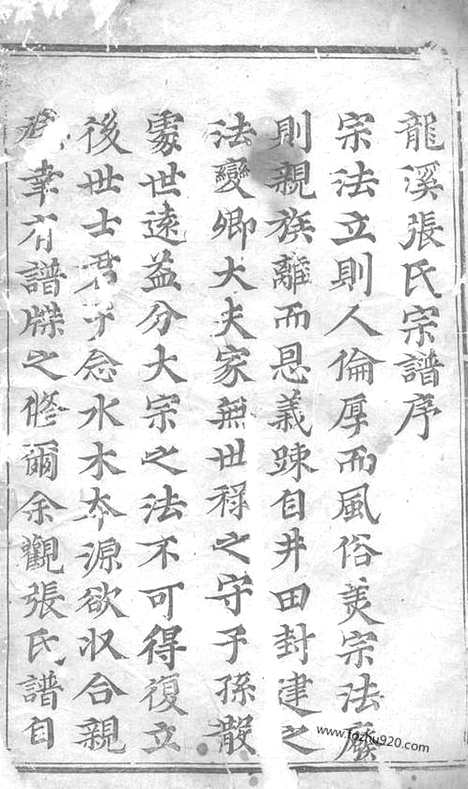 龍溪張氏宗譜序
宗法立則人倫厚而風俗美宗法廢
則親族離而恩義踈自井田封建之
法變卿大夫家無世祿之守子孫散
處世遠益分大宗之法不可得復立
後世士君子念水木本源欲收合親
幸有譜牒之修爾余觀張氏譜自
www.fozhu920.com